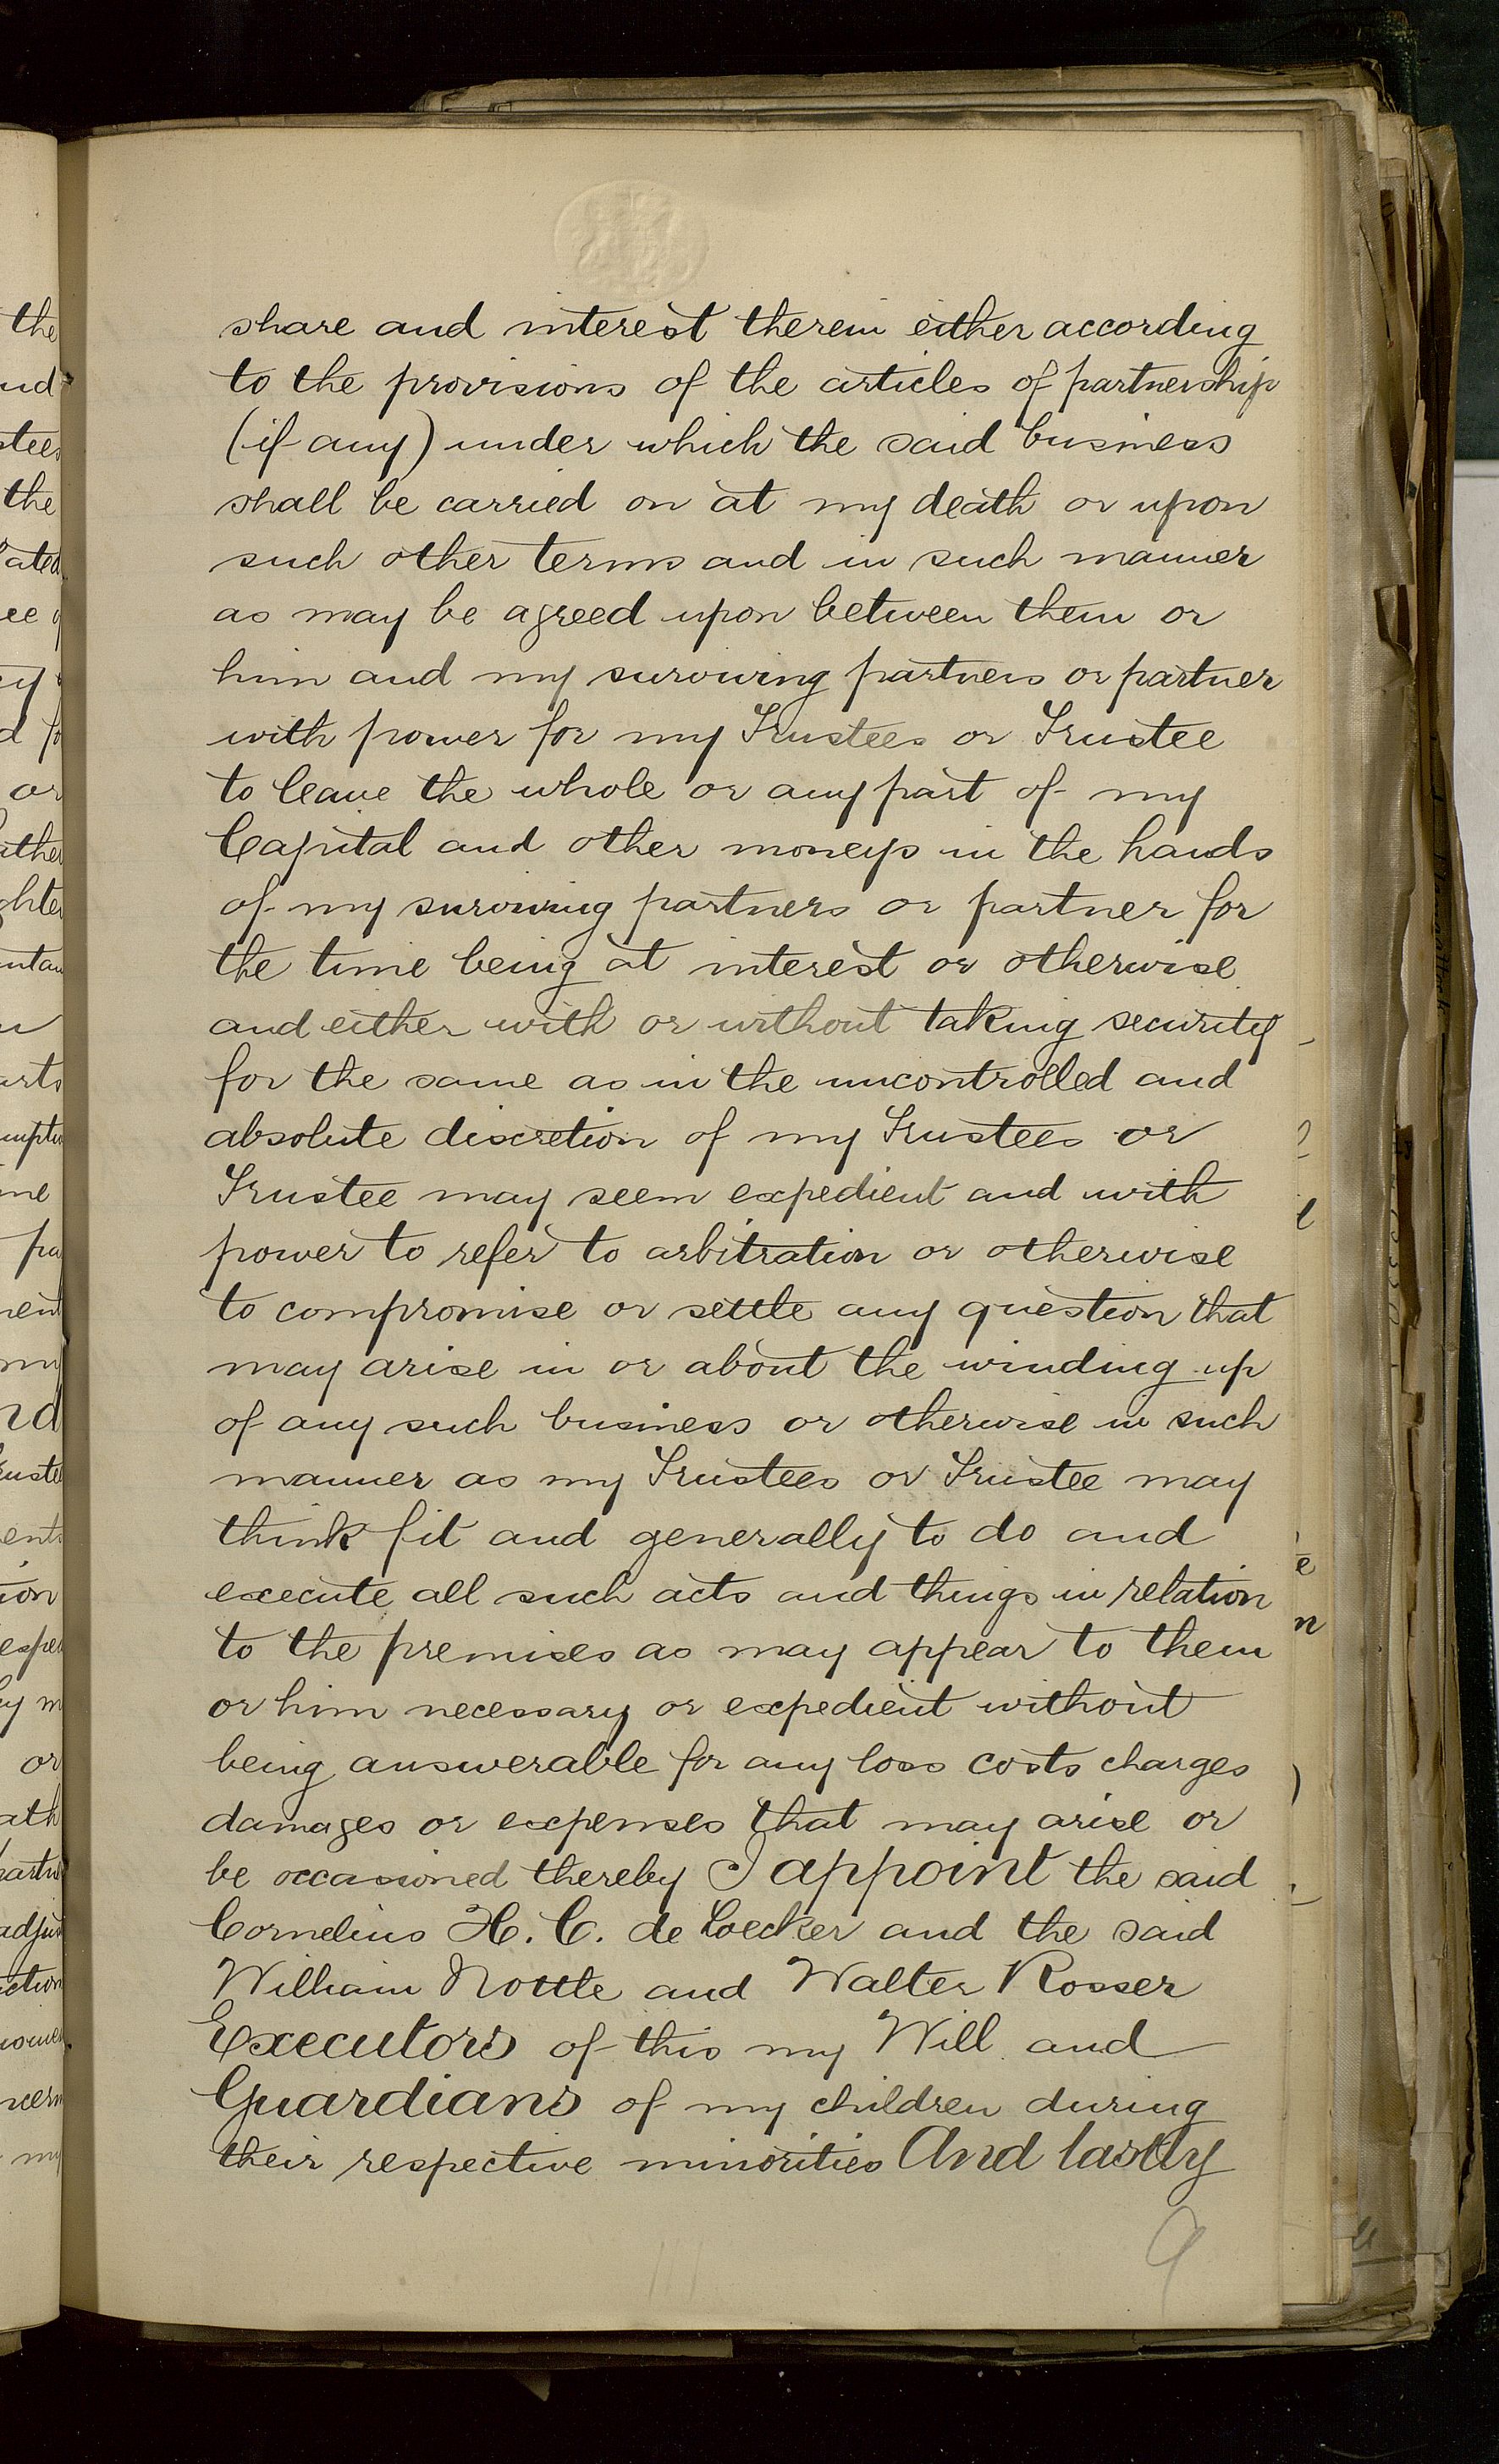 share and interest therein either according
to the provisions of the articles of partnership
(if any) under which the said business
shall be carried on at my death or upon
such other terms and in such manner
as may be agreed upon between them or
him and my surviving partners or partner
with power for my Trustees or Trustee
to leave the whole or any part of my
Capital and other moneys in the hands
of my surviving partners or partner for
the time being at interest or otherwise
and either with or without taking security
for the same as in the uncontrolled and
absolute discretion of my Trustees or
Trustee may seem expedient and with
power to refer to arbitration or otherwise
to compromise or settle any question that
may arise in or about the winding up
of any such business or otherwise in such
manner as my Trustees or Trustee may
think fit and generally to do and
execute all such acts and things in relation
to the premises as may appear to them
or him necessary or expedient without
being answerable for any loss costs charges
damages or expenses that may arise or
be occasioned thereby I appoint the said
Cornelius H. C. de Coecker and the said
William Nottle and Walter Rosser
Executors of this my Will and
Guardians of my children during
their respective minorities And lastly
9